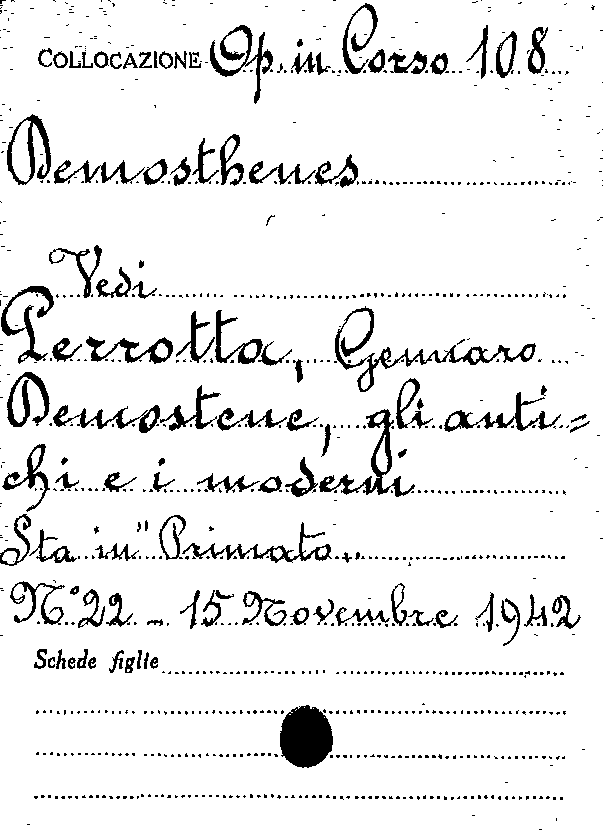 COLLOCAZIONE Op. in Corso 108
Demosthenes
Vedi
Perrotta, Gennaro
Demostene, gli anti=
chi e i moderni
Sta in "Primato„
N° 22 - 15 Novembre 1942
Schede figlie